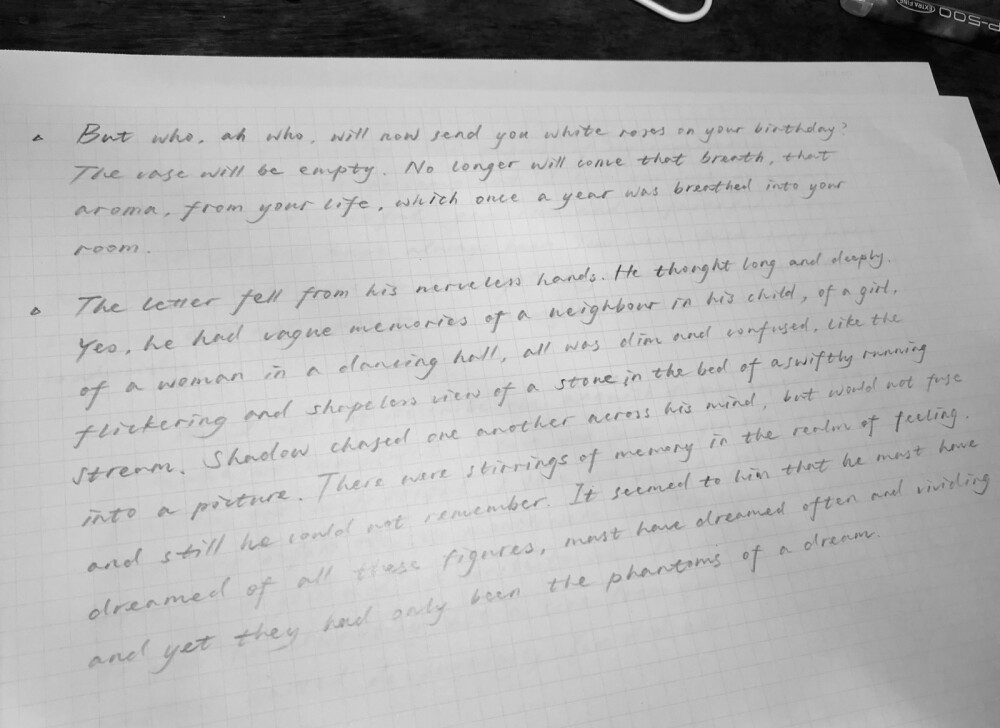 P-500
EXTRA FINE
But who, ah who, will now send you white roses on your birthday?
The vase will be empty. No longer will come that breath, that
aroma, from your life, which once a year was breathed into your
room.
The letter fell from his nerveless hands. He thought long and deeply.
Yes, he had vague memories of a neighbour in his child, of a girl,
of a woman in a dancing hall, all was dim and confused, like the
flickering and shapeless view of a stone in the bed of a swiftly running
stream. Shadow chased one another across his mind, but would not fuse
into a picture. There were stirrings of memory in the realm of feeling.
and still he could not remember. It seemed to him that he must have
dreamed of all these figures, must have dreamed often and vividing
and yet they had only been the phantoms of a dream.